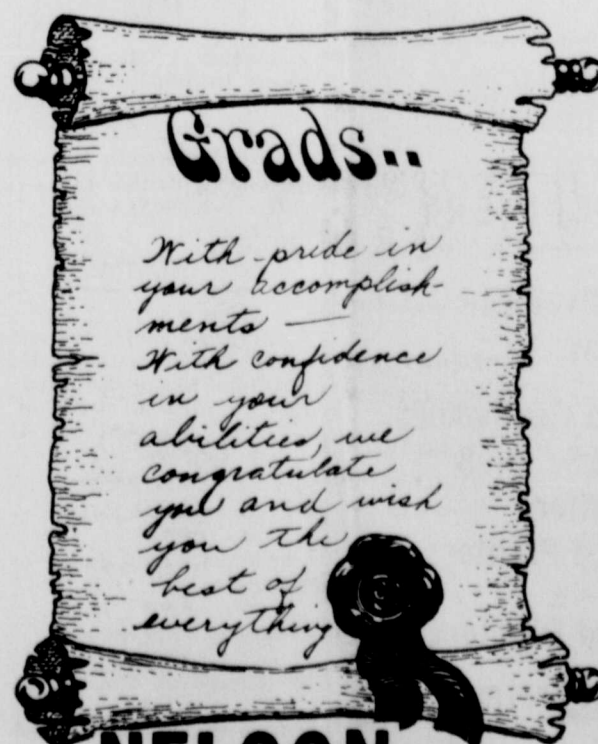 Grads..
With pride in
your accomplish-
ments —
With confidence
in your
abilities, we
congratulate
you and wish
you the
best of
everything
NELSON